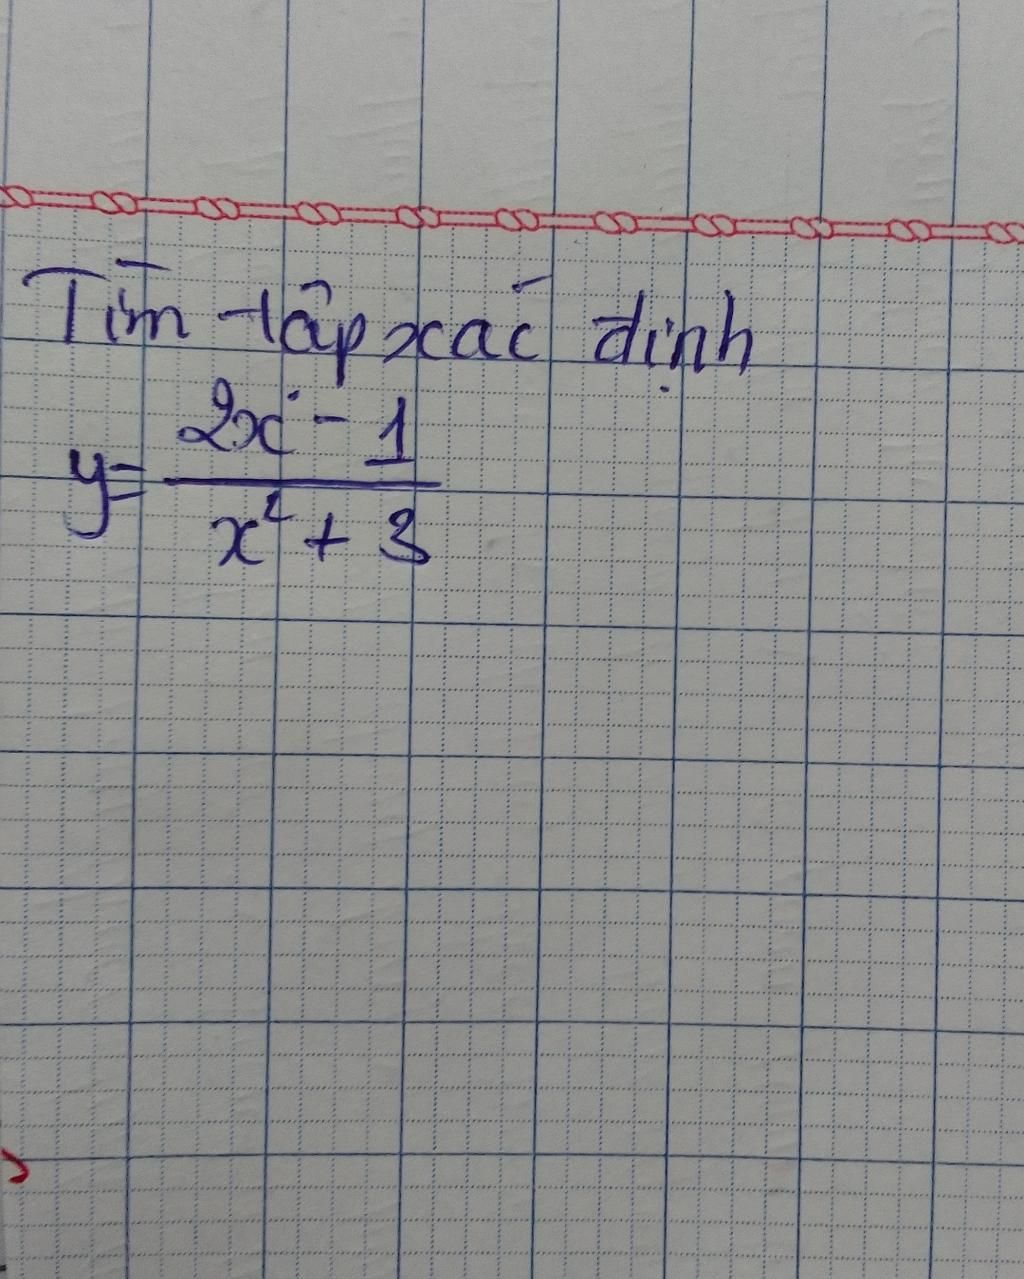 Tìm tập xác định
y = \frac{2x - 1}{x² + 3}